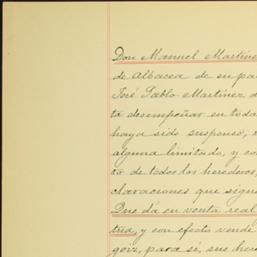 Don Manuel Martine
de Albacea de su pa
José Pablo Martinez d
ta desempeñar en toda
haya sido suspenso,
alguna limitado, y co
to de todos los herederos,
claraciones que sigue
Que dá en venta real
tua, y con efecto vende
gori, para si, sus here